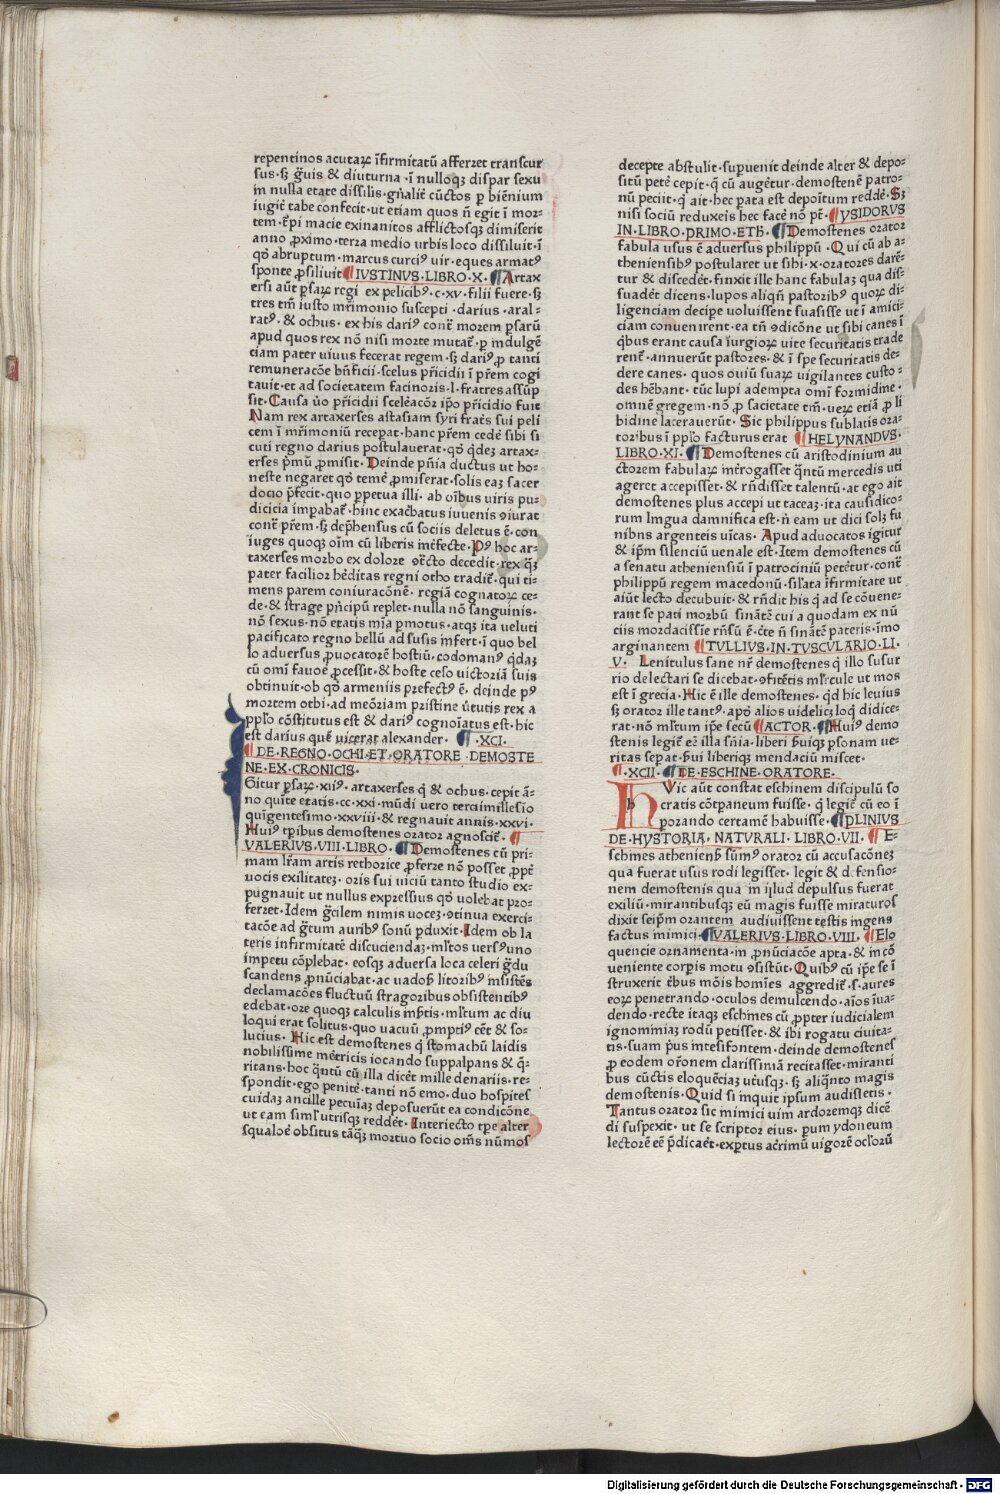 repentinos acutaꝝ ĩfirmitatũ afferret transcur
sus·sꝫ g̃uis & diuturna·ĩ nulloqꝫ dispar sexu
in nulla etate dissilis·gñalit̃ cũctos ꝑ biẽnium
iugit̃ tabe confecit·ut etiam quos ñ egit ĩ mor-
tem·t̃pi macie exinanitos afflictosqꝫ dimiserit
anno ꝓximo·terra medio urbis loco dissiluit·ĩ
qđ abruptum·marcus curciꝰ uir·eques armatꝰ
sponte ꝓsiliuit IVSTINVS·LIBRO·X· Artax
ersi aũt ꝑsaꝝ regi ex pelicibꝰ·c·xv·filii fuere·sꝫ
tres tm̃ iusto mr̃imonio suscepti·darius·aral-
ratꝰ·& ochus·ex his dariꝰ cont̃ morem ꝑsarũ
apud quos rex nõ nisi morte mutat̃·ꝑ indulgẽ
ciam pater uiuus fecerat regem·sꝫ dariꝰ ꝓ tanti
remuneracõe bñficii·scelus pr̃icidii ĩ pr̃em cogi
tauit·et ad societatem facinoris·l·fratres assũp
sit·Causa ũo pr̃icidii sceleãcoꝝ ip̃o pr̃icidio fuit
Nam rex artaxerses astasiam syri frat̃s sui peli
cem ĩ mr̃imoniũ recepat·hanc pr̃em cedẽ sibi si
cuti regno darius postulauerat·qđ q̃deꝫ artax-
erses p̃mũ ꝓmisit·Deinde pñia ductus ut ho-
neste negaret qđ temẽ ꝓmiserat·solis eaꝫ sacer
docio p̃fecit·quo ꝑpetua illi·ab oĩbus uiris pu-
dicicia imꝑabat̃·hinc exacẽbatus iuuenis ꝯiurat
cont̃ pr̃em·sꝫ dep̃hensus cũ sociis deletus ẽ·con
iuges quoqꝫ oĩm cũ liberis int̃fecte·Pꝰ hoc ar-
taxerses morbo ex dolore ꝯt̃cto decedit·rex q̃ꝫ
pater facilior hẽditas regni otho tradit̃·qui ti-
mens parem coniuracõnẽ·regiã cognatoꝝ ce-
de·& strage pñcipũ replet·nulla nõ sanguinis·
nõ sexus·nõ etatis mĩa ꝑmotus·atqꝫ ita ueluti
pacificato regno bellũ ad susis inf̃ert·ĩ quo bel
lo aduersus ꝓuocatorẽ hostiũ·codomanꝰ q̃daꝫ
cũ omĩ fauoẽ ꝓcessit·& hoste ceso uictoriã suis
obtinuit·ob qđ armeniis prefectꝰ ẽ·deinde pꝰ
mortem othi·ad meõriam pristine ũtutis rex a
pp̃lo cõstitutus est & dariꝰ cognoĩatus est·hic
est darius quẽ uicerat alexander· ·XCI·
DE·REGNO·OCHI·ET·ORATORE·DEMOSTE
NE·EX·CRONICIS·
Gitur ꝑsaꝝ·xiiꝰ·artaxerses q̃ & ochus·cepit ã-
no quite etatis·cc·xxi·mũdi uero terciimillesio
quĩgentesimo·xxviii·& regnauit annis·xxvi·
Huiꝰ tꝑibus demostenes orator agnoscit̃·
VALERIVS·VIII·LIBRO· Demostenes cũ pri-
mam lr̃am artis rethorice ꝓferre nõ posset ꝓpt̃
uocis exilitateꝫ·oris sui uiciũ tanto studio ex-
pugnauit ut nullus expressius qđ uolebat pro-
ferret·Idem g̃cilem nimis uoceꝫ·ꝯtinua exerci-
tacõe ad g̃tum auribꝰ sonũ ꝑduxit·Idem ob la
teris infirmitatẽ discuciendaꝫ·ml̃tos uersꝰuno
impetu cõplebat·eosqꝫ aduersa loca celeri g̃du
scandens ꝓnũciabat·ac uadoꝫ litoribꝰ insistẽs
declamacões fluctuũ stragoribus obsistentibꝰ
edebat·ore quoqꝫ calculis imꝑtis·ml̃tum ac diu
loqui erat solitus·quo uacuũ ꝓmptiꝰ cẽt & so-
lucius·Hic est demostenes q̃ stomachũ laidis
nobilissime met̃ricis iocando suppalpans & q̃-
ritans·hoc q̃ntũ cũ illa dicẽt mille denariis·re-
spondit·ego penitẽ·tanti nõ emo·duo hospites
cuidaꝫ ancille pecuĩaꝫ deposuerũt ea condicõne
ut eam siml̃ utrisqꝫ reddẽt·Interiecto tꝑe alter
squaloẽ obsitus tãq̃ꝫ mortuo socio oms̃ nũmos
decepte abstulit·supuenit deinde alter & depo-
sitũ petẽ cepit·q̃ cũ augẽtur·demostenẽ patro-
nũ peciit·q̃ ait·hec ꝑata est depoĩtum reddẽ·Sꝫ
nisi sociũ reduxeis hec facẽ nõ pẽ· YSIDORVS
IN·LIBRO·PRIMO·ETH̃· Demostenes orator
fabula usus ẽ aduersus philippũ·Qui cũ ab a-
theniensibꝰ postularet ut sibi·x·oratores darẽ-
tur & discedẽt·finxit ille hanc fabulaꝫ qua dis-
suadẽt dicens·lupos aliqñ pastoribꝰ quoꝝ di-
ligenciam decipe uoluissent suasisse ut ĩ amici-
ciam conuenirent·ea tñ ꝯdicõne ut sibi canes ĩ
q̃bus erant causa ĩurgioꝝ uite securitatis trade
rent̃·annuerũt pastores·& ĩ spe securitatis de-
dere canes·quos ouiũ suaꝝ uigilantes custo-
des hẽbant·tũc lupi adempta omĩ formidine·
omnẽ gregem·nõ ꝓ sacietate tm̃·ueꝝ etiã ꝓ li
bidine lacerauerũt·Sic philippus sublatis ora-
toribus ĩ pp̃lo facturus erat HELYNANDVS·
LIBRO·XI· Demostenes cũ aristodinium au
ctorem fabulaꝝ int̃rogasset q̃ntũ mercedis uti
ageret accepisset·& rñdisset talentũ·at ego ait
demostenes plus accepi ut taceaꝫ·ita causidico-
rum lingua damnifica est·ñ eam ut dici solꝫ fu
nibns argenteis uĩcas·Apud aduocatos igitur
& ip̃m silenciũ uenale est·Item demostenes cũ
a senatu atheniensiũ ĩ patrociniũ petẽtur·cont̃
philippũ regem macedonũ·sil̃ata ĩfirmitate ut
aiũt lecto decubuit·& rñdit his q̃ ad se cõuene-
rant se pati morbũ sinãtẽ cui a quodam ex nũ
ciis mordacissĩe rñsũ ẽ·c̃te ñ sinãtẽ pateris·ĩmo
arginantem TVLLIVS·IN·TVSCVLARIO·LI-
V· Lenitulus sane nr̃ demostenes q̃ illo susur
rio delectari se dicebat·ꝯfitẽtis ml̃rcule ut mos
est ĩ grecia·Hic ẽ ille demostenes·qđ hic leuius
sꝫ orator ille tantꝰ·apđ alios uidelicꝫ loq̃ didice-
rat·nõ ml̃tum ip̃e secũ ACTOR· Huiꝰ demo
stenis legit̃ et̃ illa sñia·liberi ꝑuiqꝫ ꝑsonam ue-
ritas separat·ꝑui liberiqꝫ mendaciũ miscet·
·XCII· DE·ESCHINE·ORATORE·
Vic aũt constat eschinem discipulũ so
cratis cõtpaneum fuisse·q̃ legit̃ cũ eo ĩ
ꝑorando certamẽ habuisse· PLINIVS
DE·HYSTORIA·NATVRALI·LIBRO·VII· E-
schines athenienꝫ sũmꝰ orator cũ accusacõneꝫ
qua fuerat usus rodi legisset·legit & defensio-
nem demostenis qua in illud depulsus fuerat
exiliũ·mirantibusqꝫ eũ magis fuisse miraturos
dixit seip̃m orantem audiuissent testis ingens
factus mimici· VALERIVS·LIBRO·VIII· Elo
quencie ornamenta·in ꝓnũciacõe apta·& in cõ
ueniente corpis motu ꝯsistũt·Quibꝰ cũ ip̃e se ĩ
struxerit t̃bus mõis homĩes aggredit̃·s·aures
eoꝝ penetrando·oculos demulcendo·aĩos ĩua-
dendo·recte itaqꝫ eschines cũ ꝓpter iudicialem
ignominiaꝫ rodũ petisset·& ibi rogatu ciuita-
tis·suam p̃us intesifontem·deinde demostenes
ꝓ eodem or̃onem clarissimã recitasset·miranti
bus cũctis eloquẽciaꝫ ut̃usqꝫ·sꝫ aliq̃nto magis
demostenis·Quid si inquit ipsum audissetis·
Tantus orator sic mimici uim ardoremqꝫ dicẽ
di suspexit·ut se scriptor eius·ꝑum ydoneum
lectorẽ eẽ p̃dicaẽt·exꝑtus ac̃rimũ uigorẽ ocl̃orũ
Digitalisierung gefördert durch die Deutsche Forschungsgemeinschaft · DFG